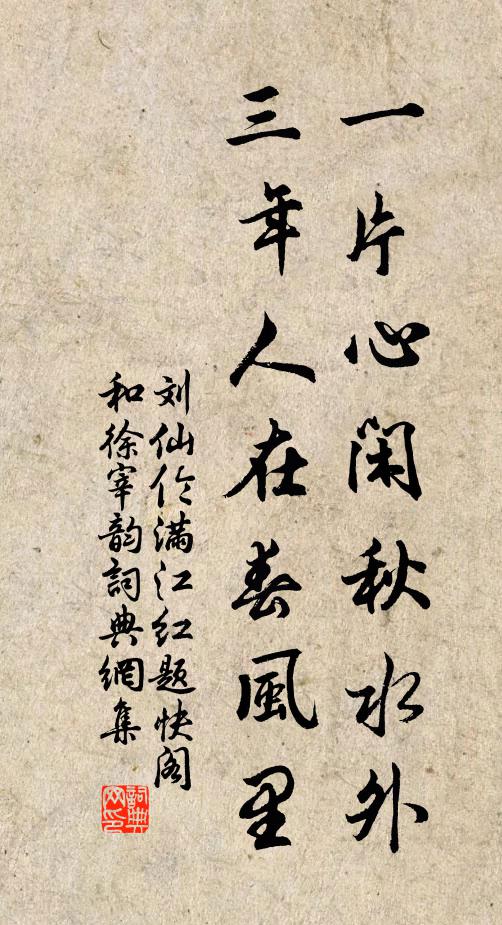 一片心闲秋水外
三年人在春風里
刘仙伦满江红题快阁
和徐宰韵詞典網集
詞典网印